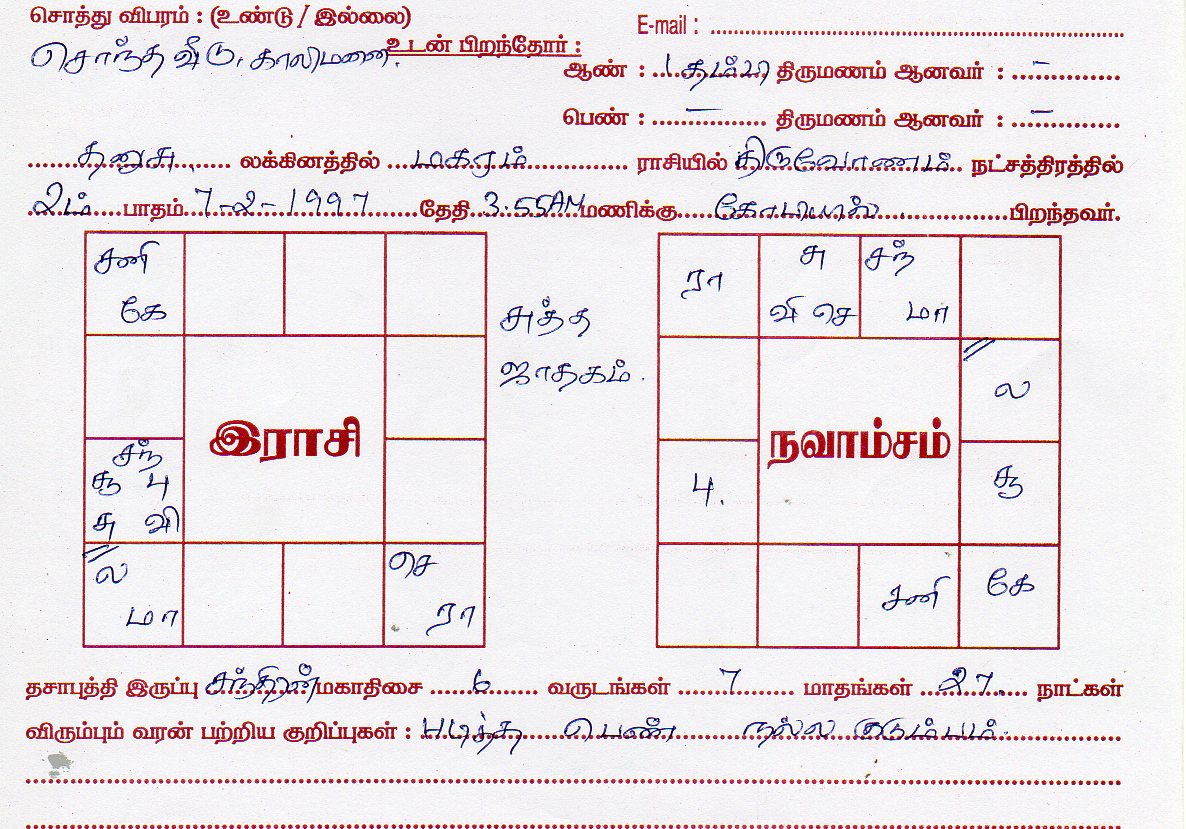 சொத்து விபரம் : (உண்டு / இல்லை)
சொந்த வீடு, காலிமனை.
E-mail :
உடன் பிறந்தோர் :
ஆண் : 1 தம்பி திருமணம் ஆனவர் : –
பெண் : – திருமணம் ஆனவர் : –
தனுசு லக்கினத்தில் மகரம் ராசியில் திருவோணம் நட்சத்திரத்தில்
2ம் பாதம் 7-2-1997 தேதி 3.55AM மணிக்கு பிறந்தவர்.
சனி
கே
சந்
சூ பு
சு வி
இராசி
ல
மா
செ
ரா
சுத்த
ஜாதகம்.
ரா
சு
வி செ
சந்
மா
ல
நவாம்சம்
பு.
சூ
சனி
கே
தசாபுத்தி இருப்பு சந்திரன் மகாதிசை 6 வருடங்கள் 7 மாதங்கள் 27 நாட்கள்
விரும்பும் வரன் பற்றிய குறிப்புகள் : படித்த பெண் நல்ல குடும்பம்.